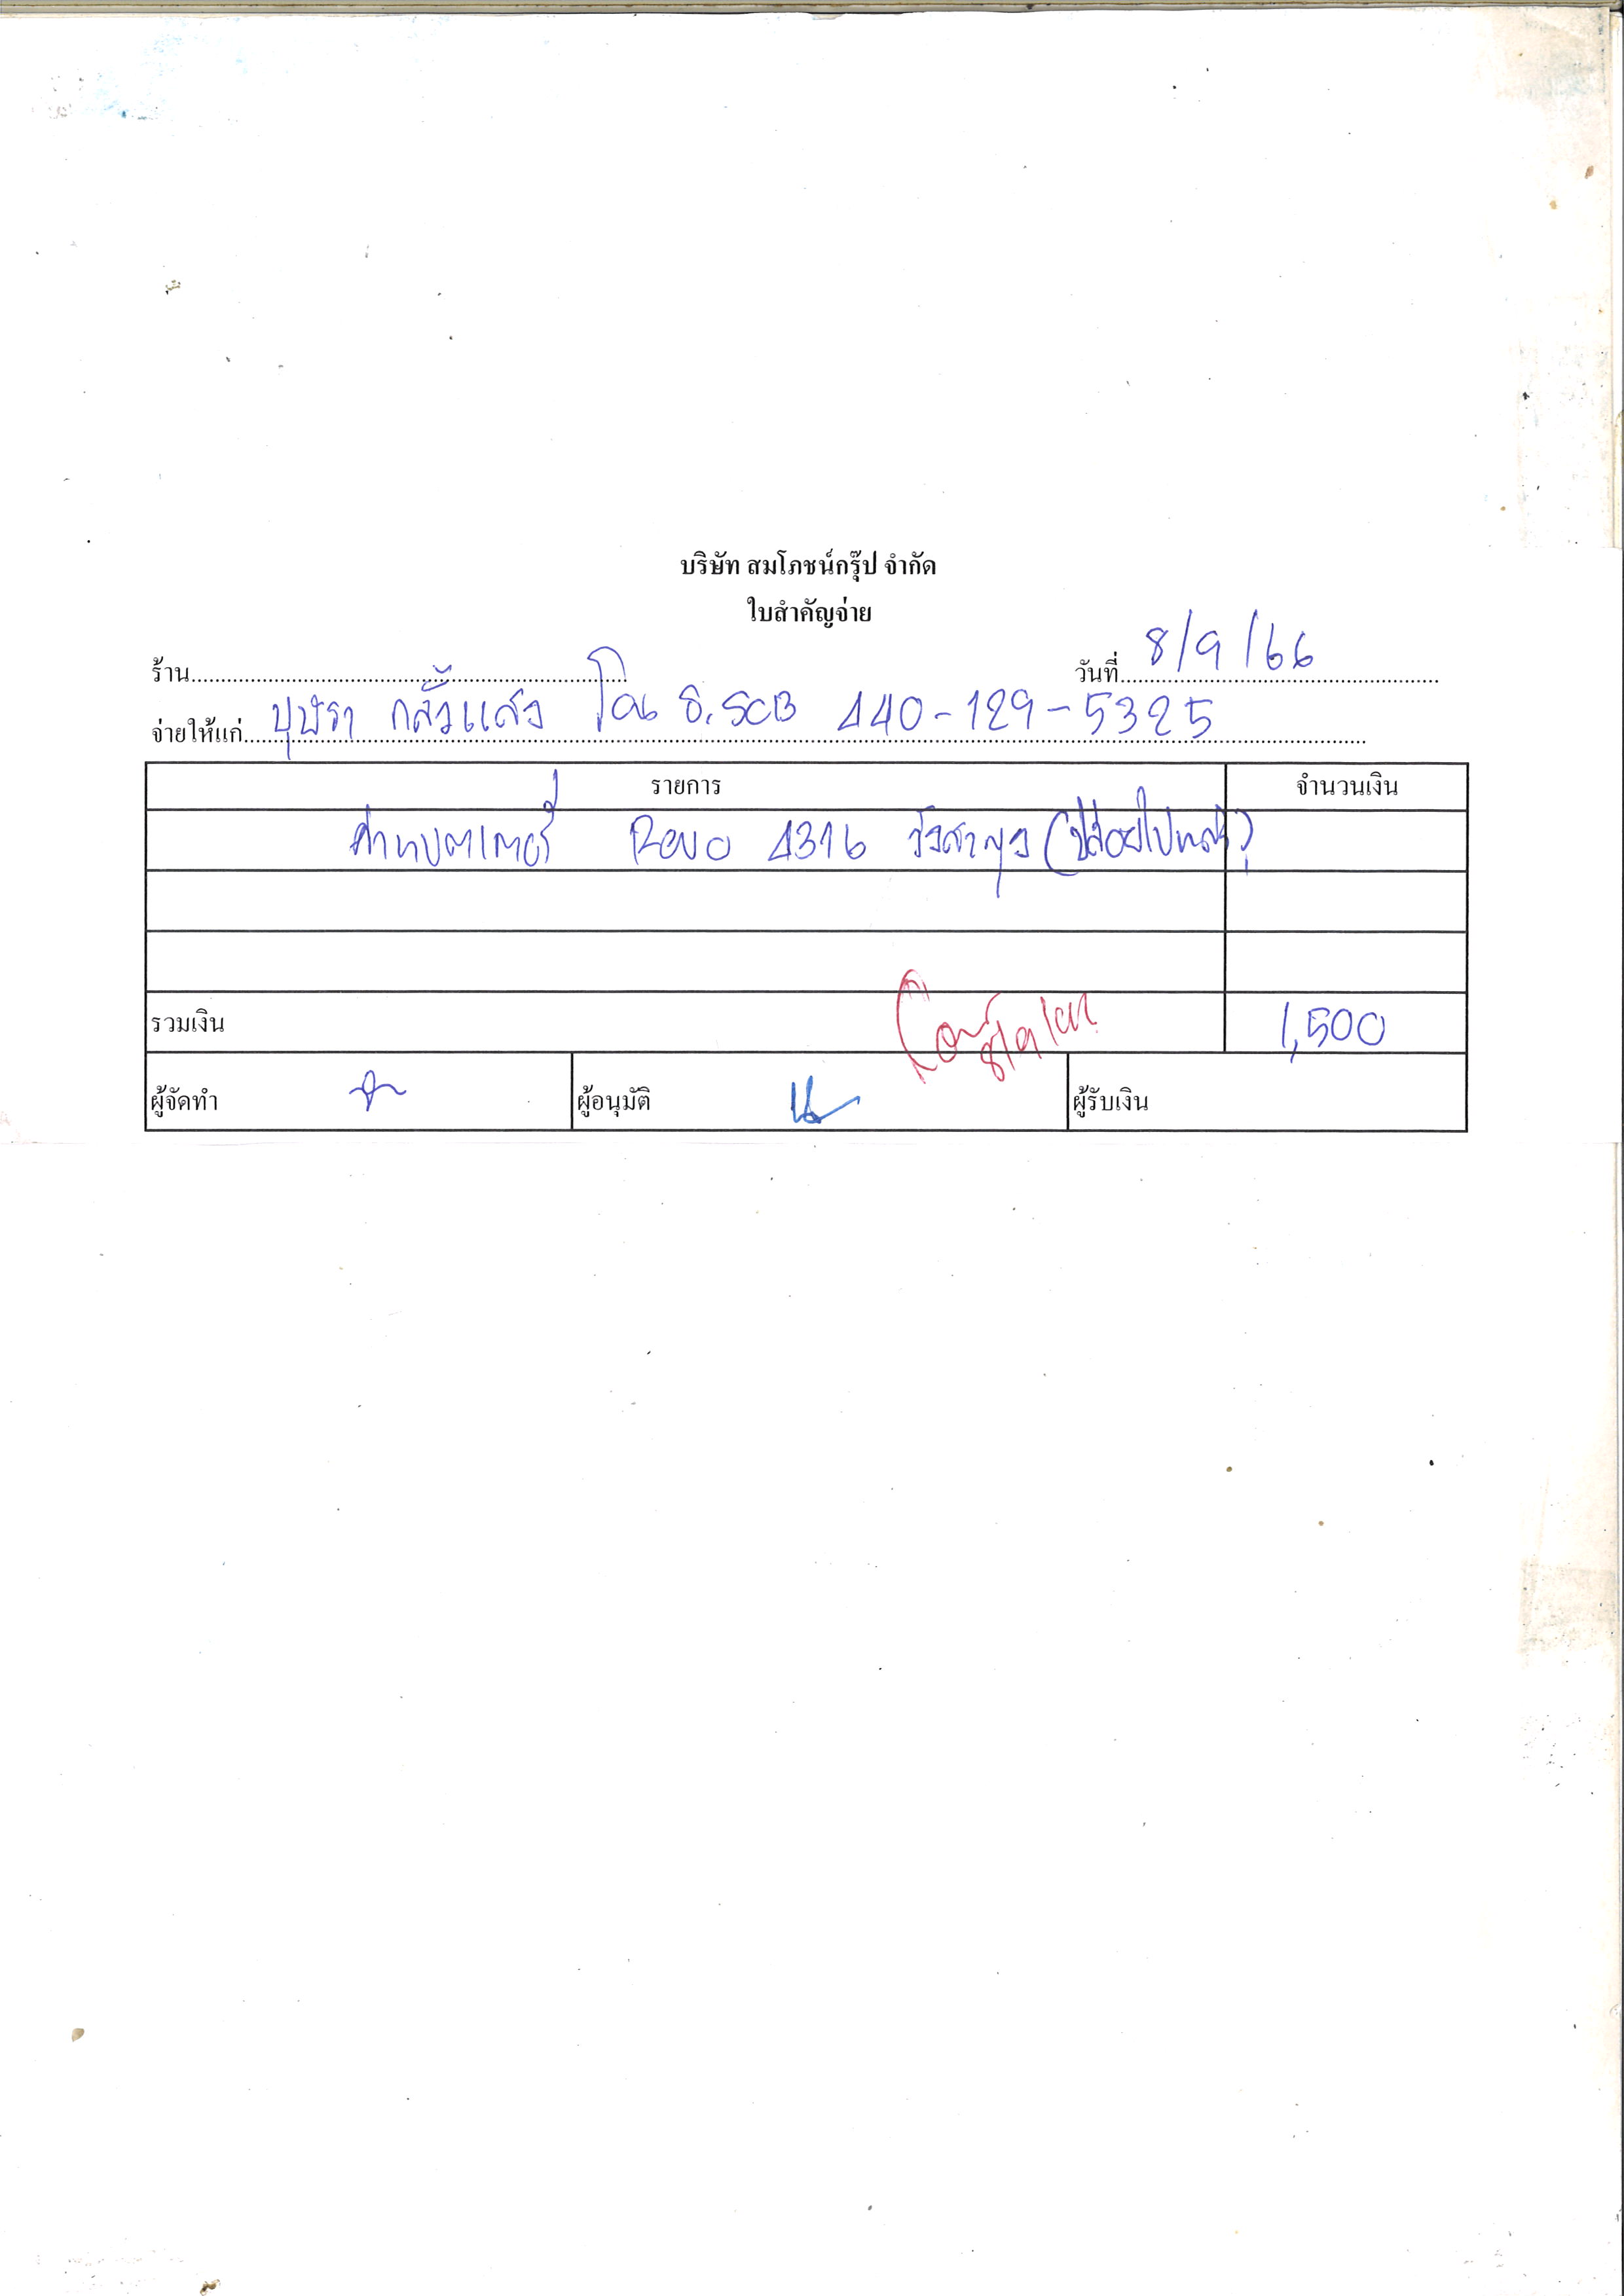 บริษัท สมโภชน์กรุ๊ป จำกัด
ใบสำคัญจ่าย
ร้าน
วันที่ 8/9/66
จ่ายให้แก่ บุษรา กลั่วแสง โอน ธ. SCB 440-129-5325
รายการ จำนวนเงิน
ค่าแบตเตอรี่ Revo 4316
รวมเงิน 1,500
โอน 8/9/66
ผู้จัดทำ ผู้อนุมัติ ผู้รับเงิน